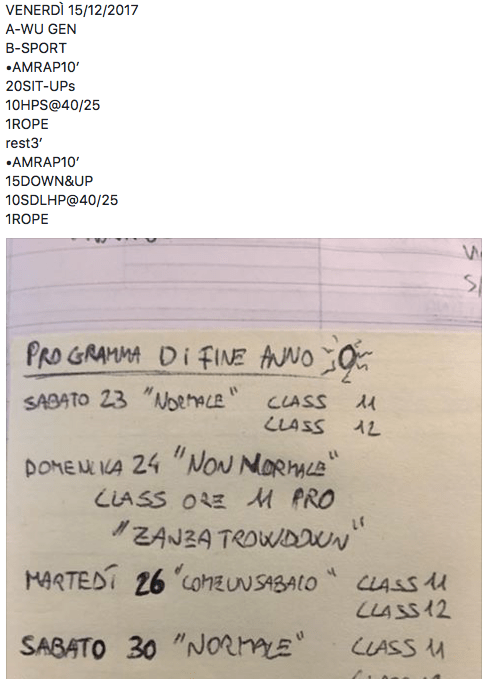 VENERDÌ 15/12/2017
A-WU GEN
B-SPORT
•AMRAP10’
20SIT-UPs
10HPS@40/25
1ROPE
rest3’
•AMRAP10’
15DOWN&UP
10SDLHP@40/25
1ROPE
PROGRAMMA DI FINE ANNO
SABATO 23 "NORMALE" CLASS 11
CLASS 12
DOMENICA 24 "NON NORMALE"
CLASS ORE 11 PRO
"ZANZATROWDOWN"
MARTEDÌ 26 "COMEUNSABATO" CLASS 11
CLASS 12
SABATO 30 "NORMALE" CLASS 11